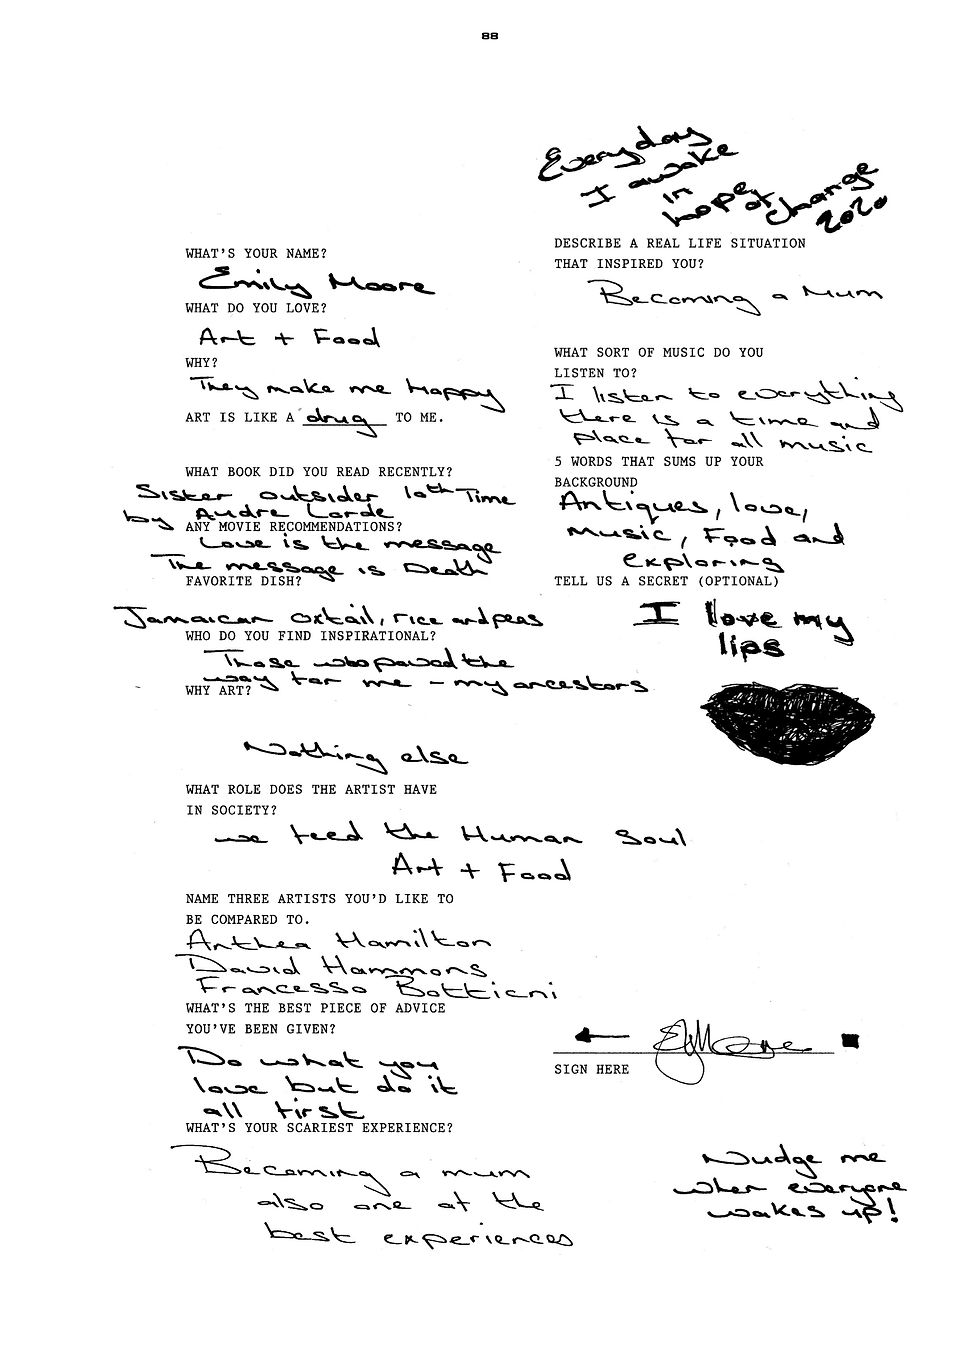 88
WHAT'S YOUR NAME?
Emily Moore
WHAT DO YOU LOVE?
Art + Food
WHY?
They make me Happy
ART IS LIKE A drug TO ME.
WHAT BOOK DID YOU READ RECENTLY?
Sister outsider 10th Time
by Audre Lorde
ANY MOVIE RECOMMENDATIONS?
Love is the message
The message is Death
FAVORITE DISH?
Jamaican oxtail, rice and peas
WHO DO YOU FIND INSPIRATIONAL?
Those who paved the
way for me - my ancestors
WHY ART?
Nothing else
WHAT ROLE DOES THE ARTIST HAVE
IN SOCIETY?
we feed the Human Soul
Art + Food
NAME THREE ARTISTS YOU'D LIKE TO
BE COMPARED TO.
Anthea Hamilton
David Hammons
Francesso Botticni
WHAT'S THE BEST PIECE OF ADVICE
YOU'VE BEEN GIVEN?
Do what you
love but do it
all first
WHAT'S YOUR SCARIEST EXPERIENCE?
Becoming a mum
also one of the
best experiences
Everyday
I awake
in
hope of change
2020
DESCRIBE A REAL LIFE SITUATION
THAT INSPIRED YOU?
Becoming a Mum
WHAT SORT OF MUSIC DO YOU
LISTEN TO?
I listen to everything
there is a time and
place for all music
5 WORDS THAT SUMS UP YOUR
BACKGROUND
Antiques, love,
music, Food and
exploring
TELL US A SECRET (OPTIONAL)
I love my
lips
EJMoore
SIGN HERE
Nudge me
when everyone
wakes up!